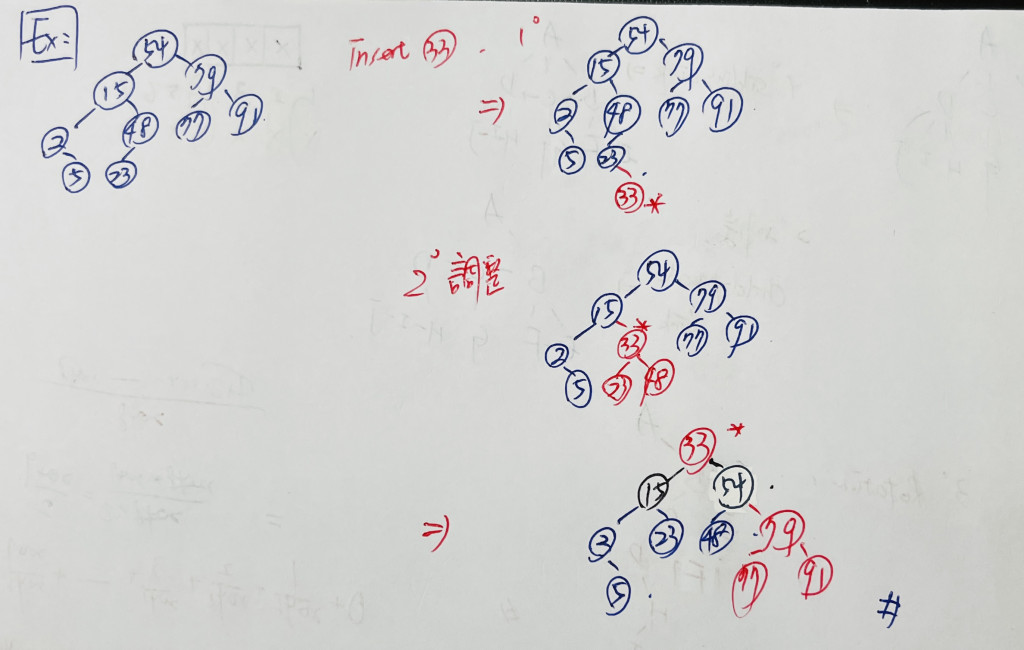 Ex:
54
15 79
2 48 77 91
5 23
insert 33 . 1°
⇒
54
15 79
2 48 77 91
5 23
33 *
2° 調整
54
15 79
2 33 * 77 91
5 23 48
⇒
33 *
15 54
2 23 48 79
5 77 91
#